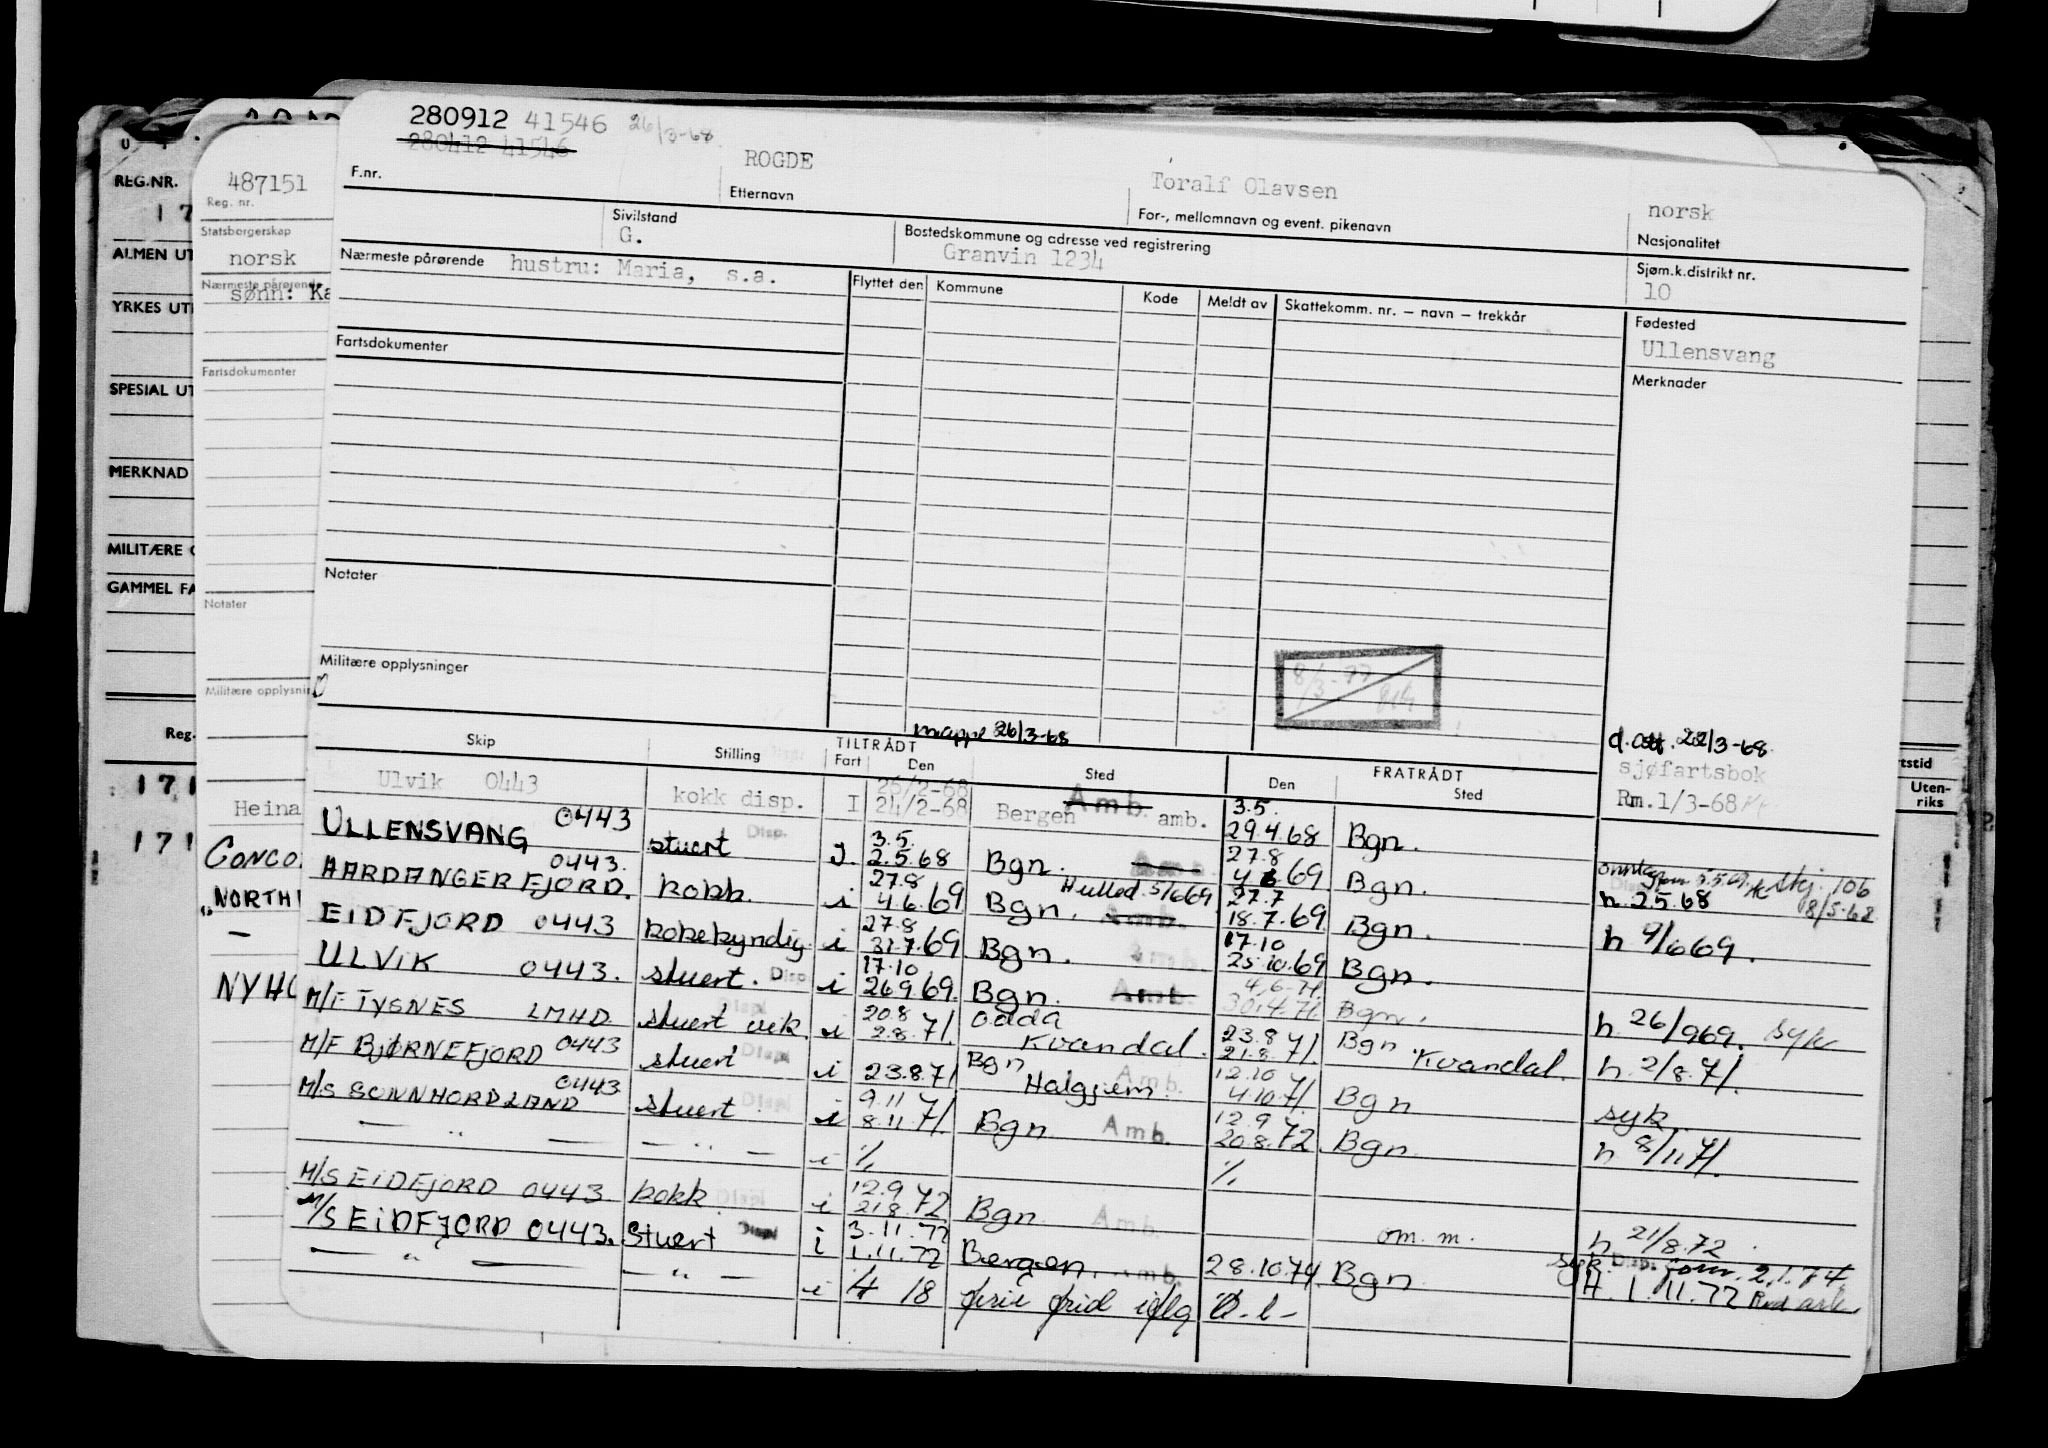 280912 41546 26/3-68
280412 41546
ROGDE
Toralf Olavsen
norsk
F.nr.
Etternavn
For-, mellomnavn og event. pikenavn
Nasjonalitet
Sivilstand
G.
Bostedskommune og adresse ved registrering
Granvin 1234
Sjøm.k.distrikt nr.
10
Nærmeste pårørende hustru: Maria, s.a.
Flyttet den Kommune Kode Meldt av Skattekomm. nr. – navn – trekkår
Fødested
Ullensvang
Fartsdokumenter
Merknader
Notater
Militære opplysninger
8/3-77
mappe 26/3-68
d.att. 22/3-68
sjøfartsbok
Rm.1/3-68
Skip Stilling TILTRÅDT Fart Den Sted FRATRÅDT Den Sted
Ulvik 0443 kokk disp. I 26/2-68 24/2-68 Bergen Amb. amb. 3.5. 29.4.68 Bgn.
ULLENSVANG 0443 stuert Disp. I. 3.5. 2.5.68 Bgn. Amb. 27.8 4.6.69 Bgn. 5.5.69 Skj. 106 8/5-68
h. 2.5.68
HARDANGERFJORD. 0443. kokk. i 27.8 4.6.69 Bgn. Hulled 5/6 69 Amb. 27.7 18.7.69 Bgn. h 4/6 69.
EIDFJORD 0443 kokekyndig. i 27.8 31.7.69 Bgn. Amb. 17.10 25.10.69 Bgn.
ULVIK 0443. stuert. Disp. i 17.10 26.9.69. Bgn. Amb. 4.6-71. 30.4.71 Bgn. h 26/9 69. syk
M/F TYSNES LMHD stuert vik. i 20.8 2.8.71. Odda Kvandal. 23.8 21.8.71. Bgn Kvandal. h. 2/8.71.
M/F BJØRNEFJORD 0443 stuert Disp. i 23.8.71 Bgn Halgjem. Amb. 12.10 4.10.71. Bgn syk.
M/S SUNNHORDLAND 0443 stuert Disp. i 9.11 8.11.71. Bgn. Amb. 12.9 20.8.72. Bgn. h 8/11 71.
— " — — " — i % %
M/S EIDFJORD 0443 kokk Disp. i 12.9 21.8.72 Bgn. Amb. om.m. h 21/8.72.
M/S EIDFJORD 0443. Stuert Disp. i 3.11.72 1.11.72 Bergen. Amb. 28.10.74 Bgn syk. Disp. 2.1.74
H. 1.11.72
— " — — " — i 4 18
REG.NR.
ALMEN UT
YRKES UT
SPESIAL UT
MERKNAD
MILITÆRE
GAMMEL FA
Reg.
171
171
487151
Reg. nr.
Statsborgerskap
norsk
Nærmeste pårørende
sønn: Ka
Fartsdokumenter
Notater
Militære opplysnin
Heina
CONCO
NORTH
—
NYHO
rtstid
Uten-
riks